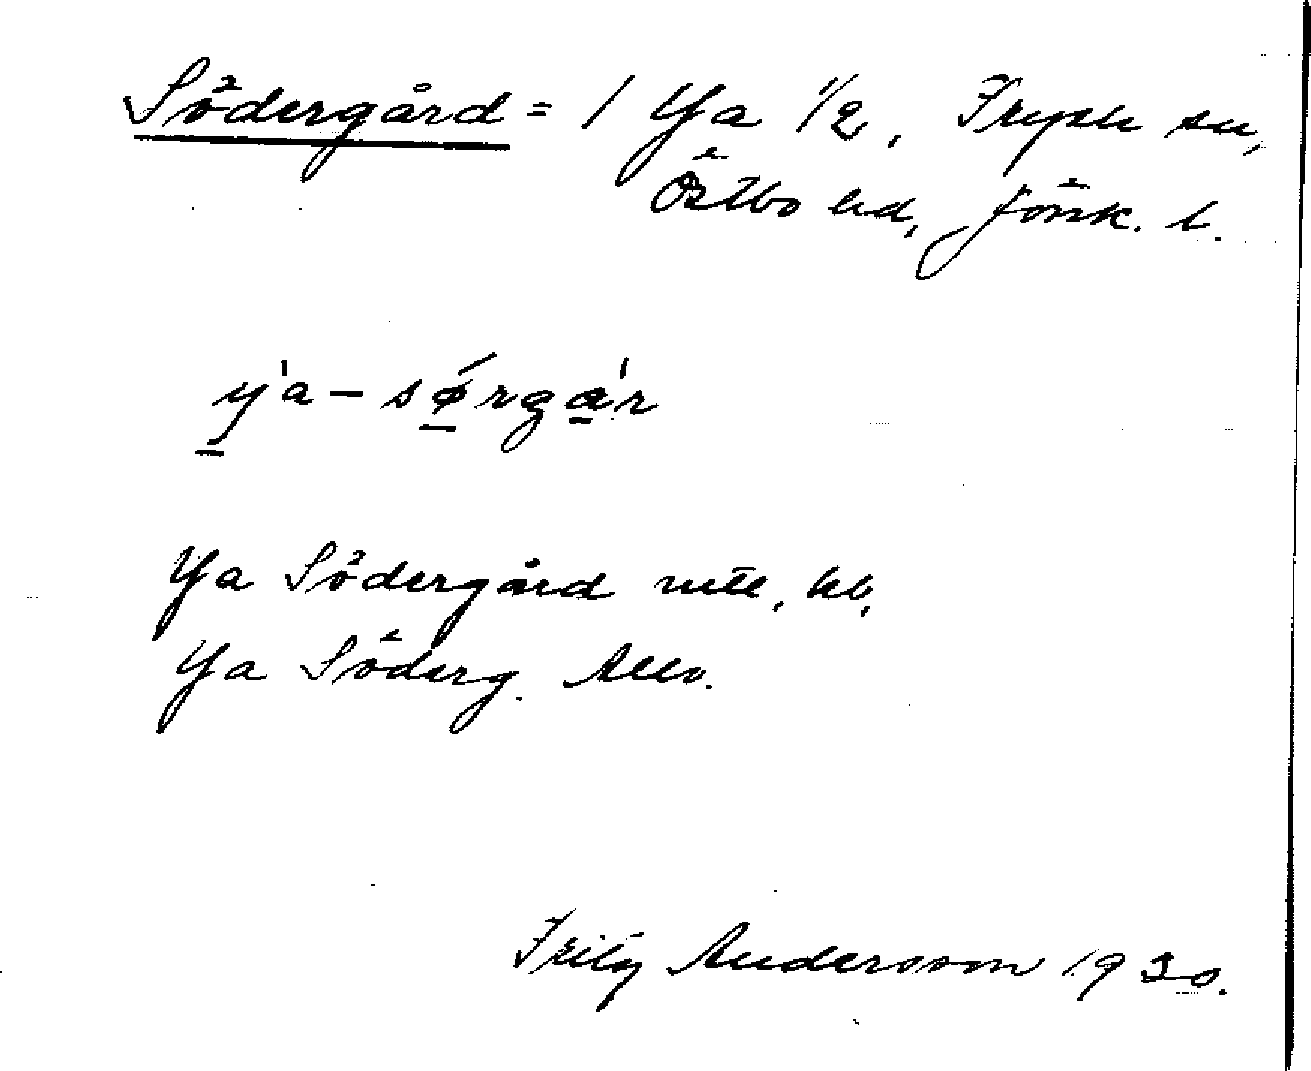 Södergård = 1 Ya 1/2, Fryele sn,
Östbo hd, Jönk. l.
y'a – sø´rga'r
Ya Södergård mtl, hb,
Ya Söderg. Allm.
Fritz Andersson 1930.